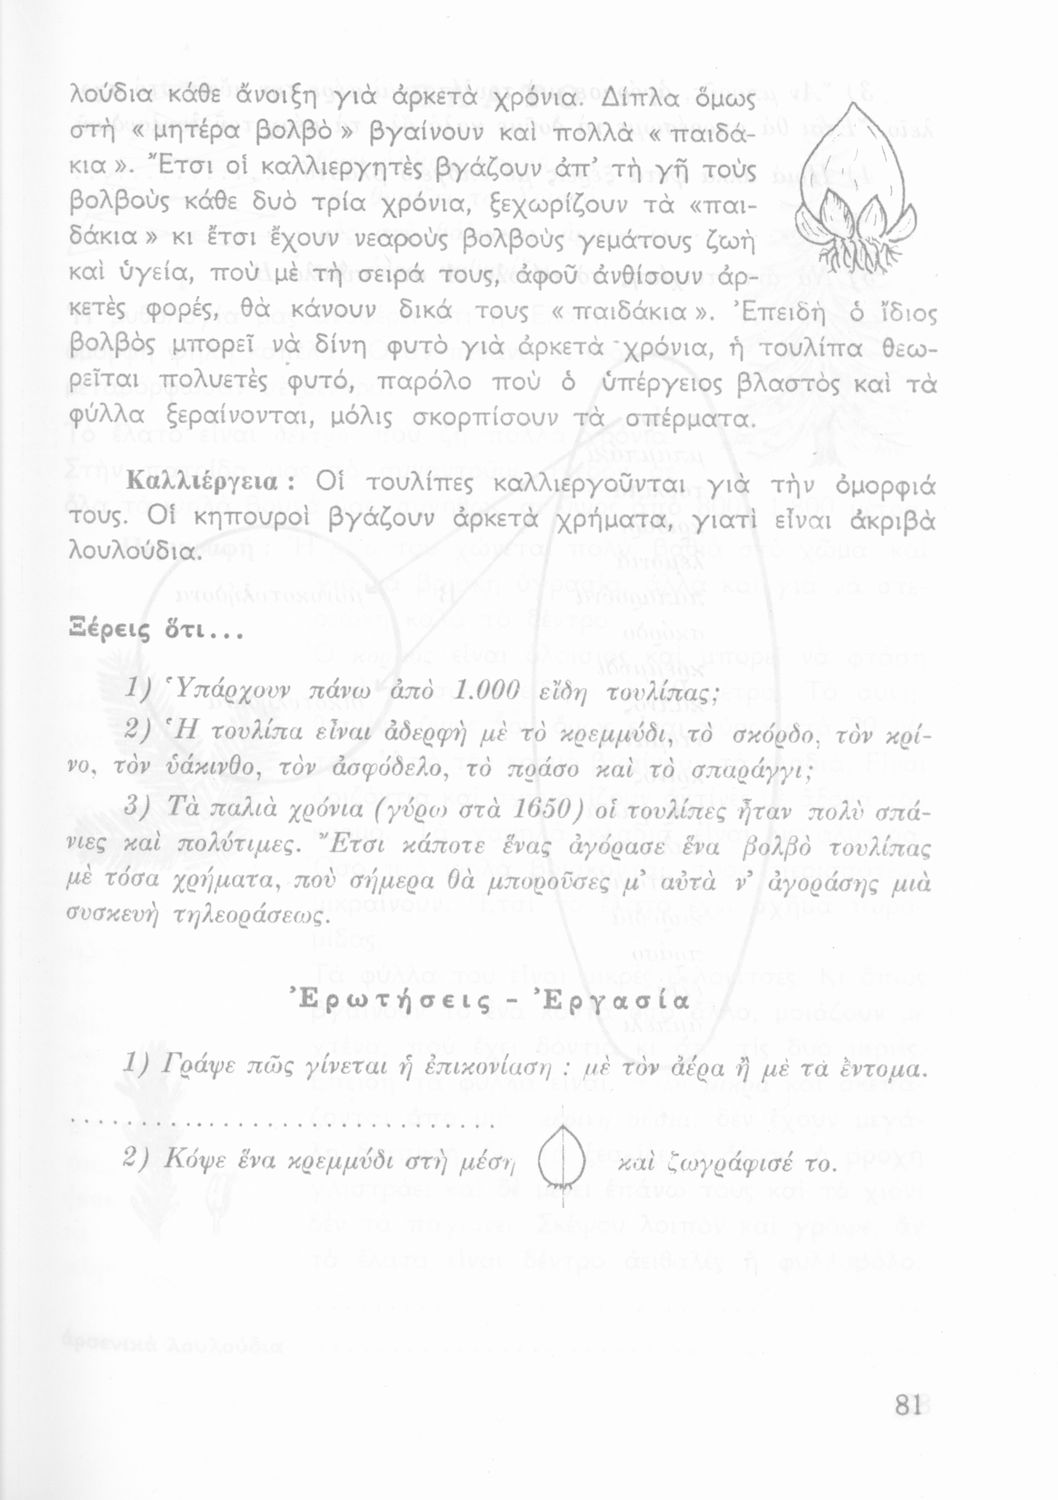 λούδια κάθε ἄνοιξη γιὰ ἀρκετὰ χρόνια. Δίπλα ὅμως
στὴ « μητέρα βολβὸ » βγαίνουν καὶ πολλὰ « παιδά-
κια ». Ἔτσι οἱ καλλιεργητὲς βγάζουν ἀπ’ τὴ γῆ τοὺς
βολβοὺς κάθε δυὸ τρία χρόνια, ξεχωρίζουν τὰ «παι-
δάκια » κι ἔτσι ἔχουν νεαροὺς βολβοὺς γεμάτους ζωὴ
καὶ ὑγεία, ποὺ μὲ τὴ σειρά τους, ἀφοῦ ἀνθίσουν ἀρ-
κετὲς φορές, θὰ κάνουν δικά τους « παιδάκια ». Ἐπειδὴ ὁ ἴδιος
βολβὸς μπορεῖ νὰ δίνη φυτὸ γιὰ ἀρκετὰ χρόνια, ἡ τουλίπα θεω-
ρεῖται πολυετὲς φυτό, παρόλο ποὺ ὁ ὑπέργειος βλαστὸς καὶ τὰ
φύλλα ξεραίνονται, μόλις σκορπίσουν τὰ σπέρματα.
Καλλιέργεια : Οἱ τουλίπες καλλιεργοῦνται γιὰ τὴν ὀμορφιά
τους. Οἱ κηπουροὶ βγάζουν ἀρκετὰ χρήματα, γιατὶ εἶναι ἀκριβὰ
λουλούδια.
Ξέρεις ὅτι...
1) Ὑπάρχουν πάνω ἀπὸ 1.000 εἴδη τουλίπας;
2) Ἡ τουλίπα εἶναι ἀδερφὴ μὲ τὸ κρεμμύδι, τὸ σκόρδο, τὸν κρί-
νο, τὸν ὑάκινθο, τὸν ἀσφόδελο, τὸ πράσο καὶ τὸ σπαράγγι;
3) Τὰ παλιὰ χρόνια (γύρω στὰ 1650) οἱ τουλίπες ἦταν πολὺ σπά-
νιες καὶ πολύτιμες. Ἔτσι κάποτε ἕνας ἀγόρασε ἕνα βολβὸ τουλίπας
μὲ τόσα χρήματα, ποὺ σήμερα θὰ μποροῦσες μ’ αὐτὰ ν’ ἀγοράσης μιὰ
συσκευὴ τηλεοράσεως.
Ἐρωτήσεις - Ἐργασία
1) Γράψε πῶς γίνεται ἡ ἐπικονίαση : μὲ τὸν ἀέρα ἢ μὲ τὰ ἔντομα.
................................
2) Κόψε ἕνα κρεμμύδι στὴ μέση καὶ ζωγράφισέ το.
81